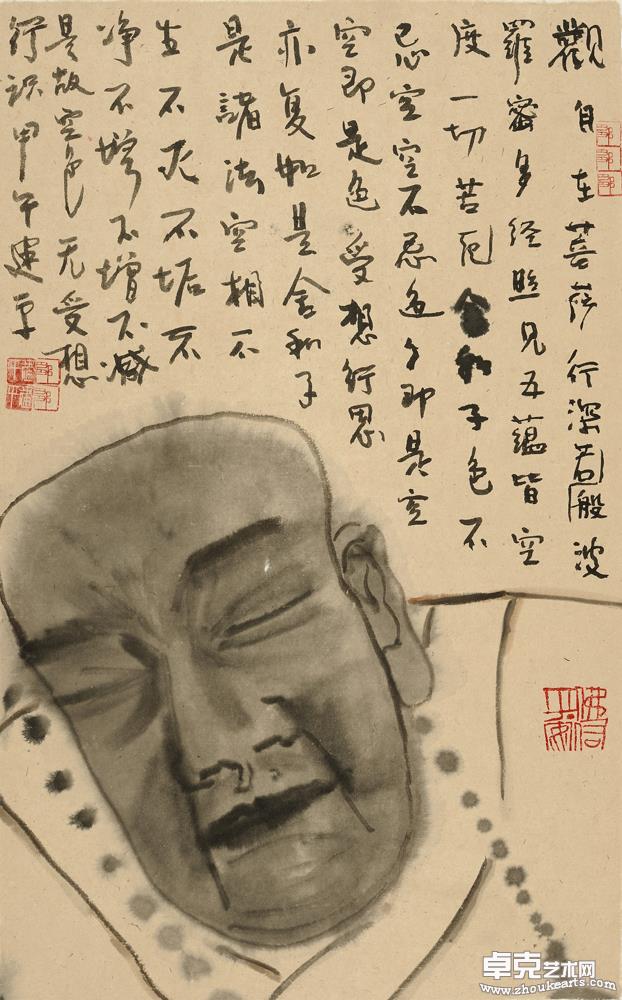 觀自在菩萨行深若般波
羅密多经照见五蕴皆空
度一切苦厄舍利子色不
忌空空不忌色々即是空
空即是色受想行思
亦复如是舍利子
是諸法空相不
生不灭不垢不
净不增不减
是故空色无受想
行识甲午建平
佛心
卓克艺术网
www.zhoukearts.com